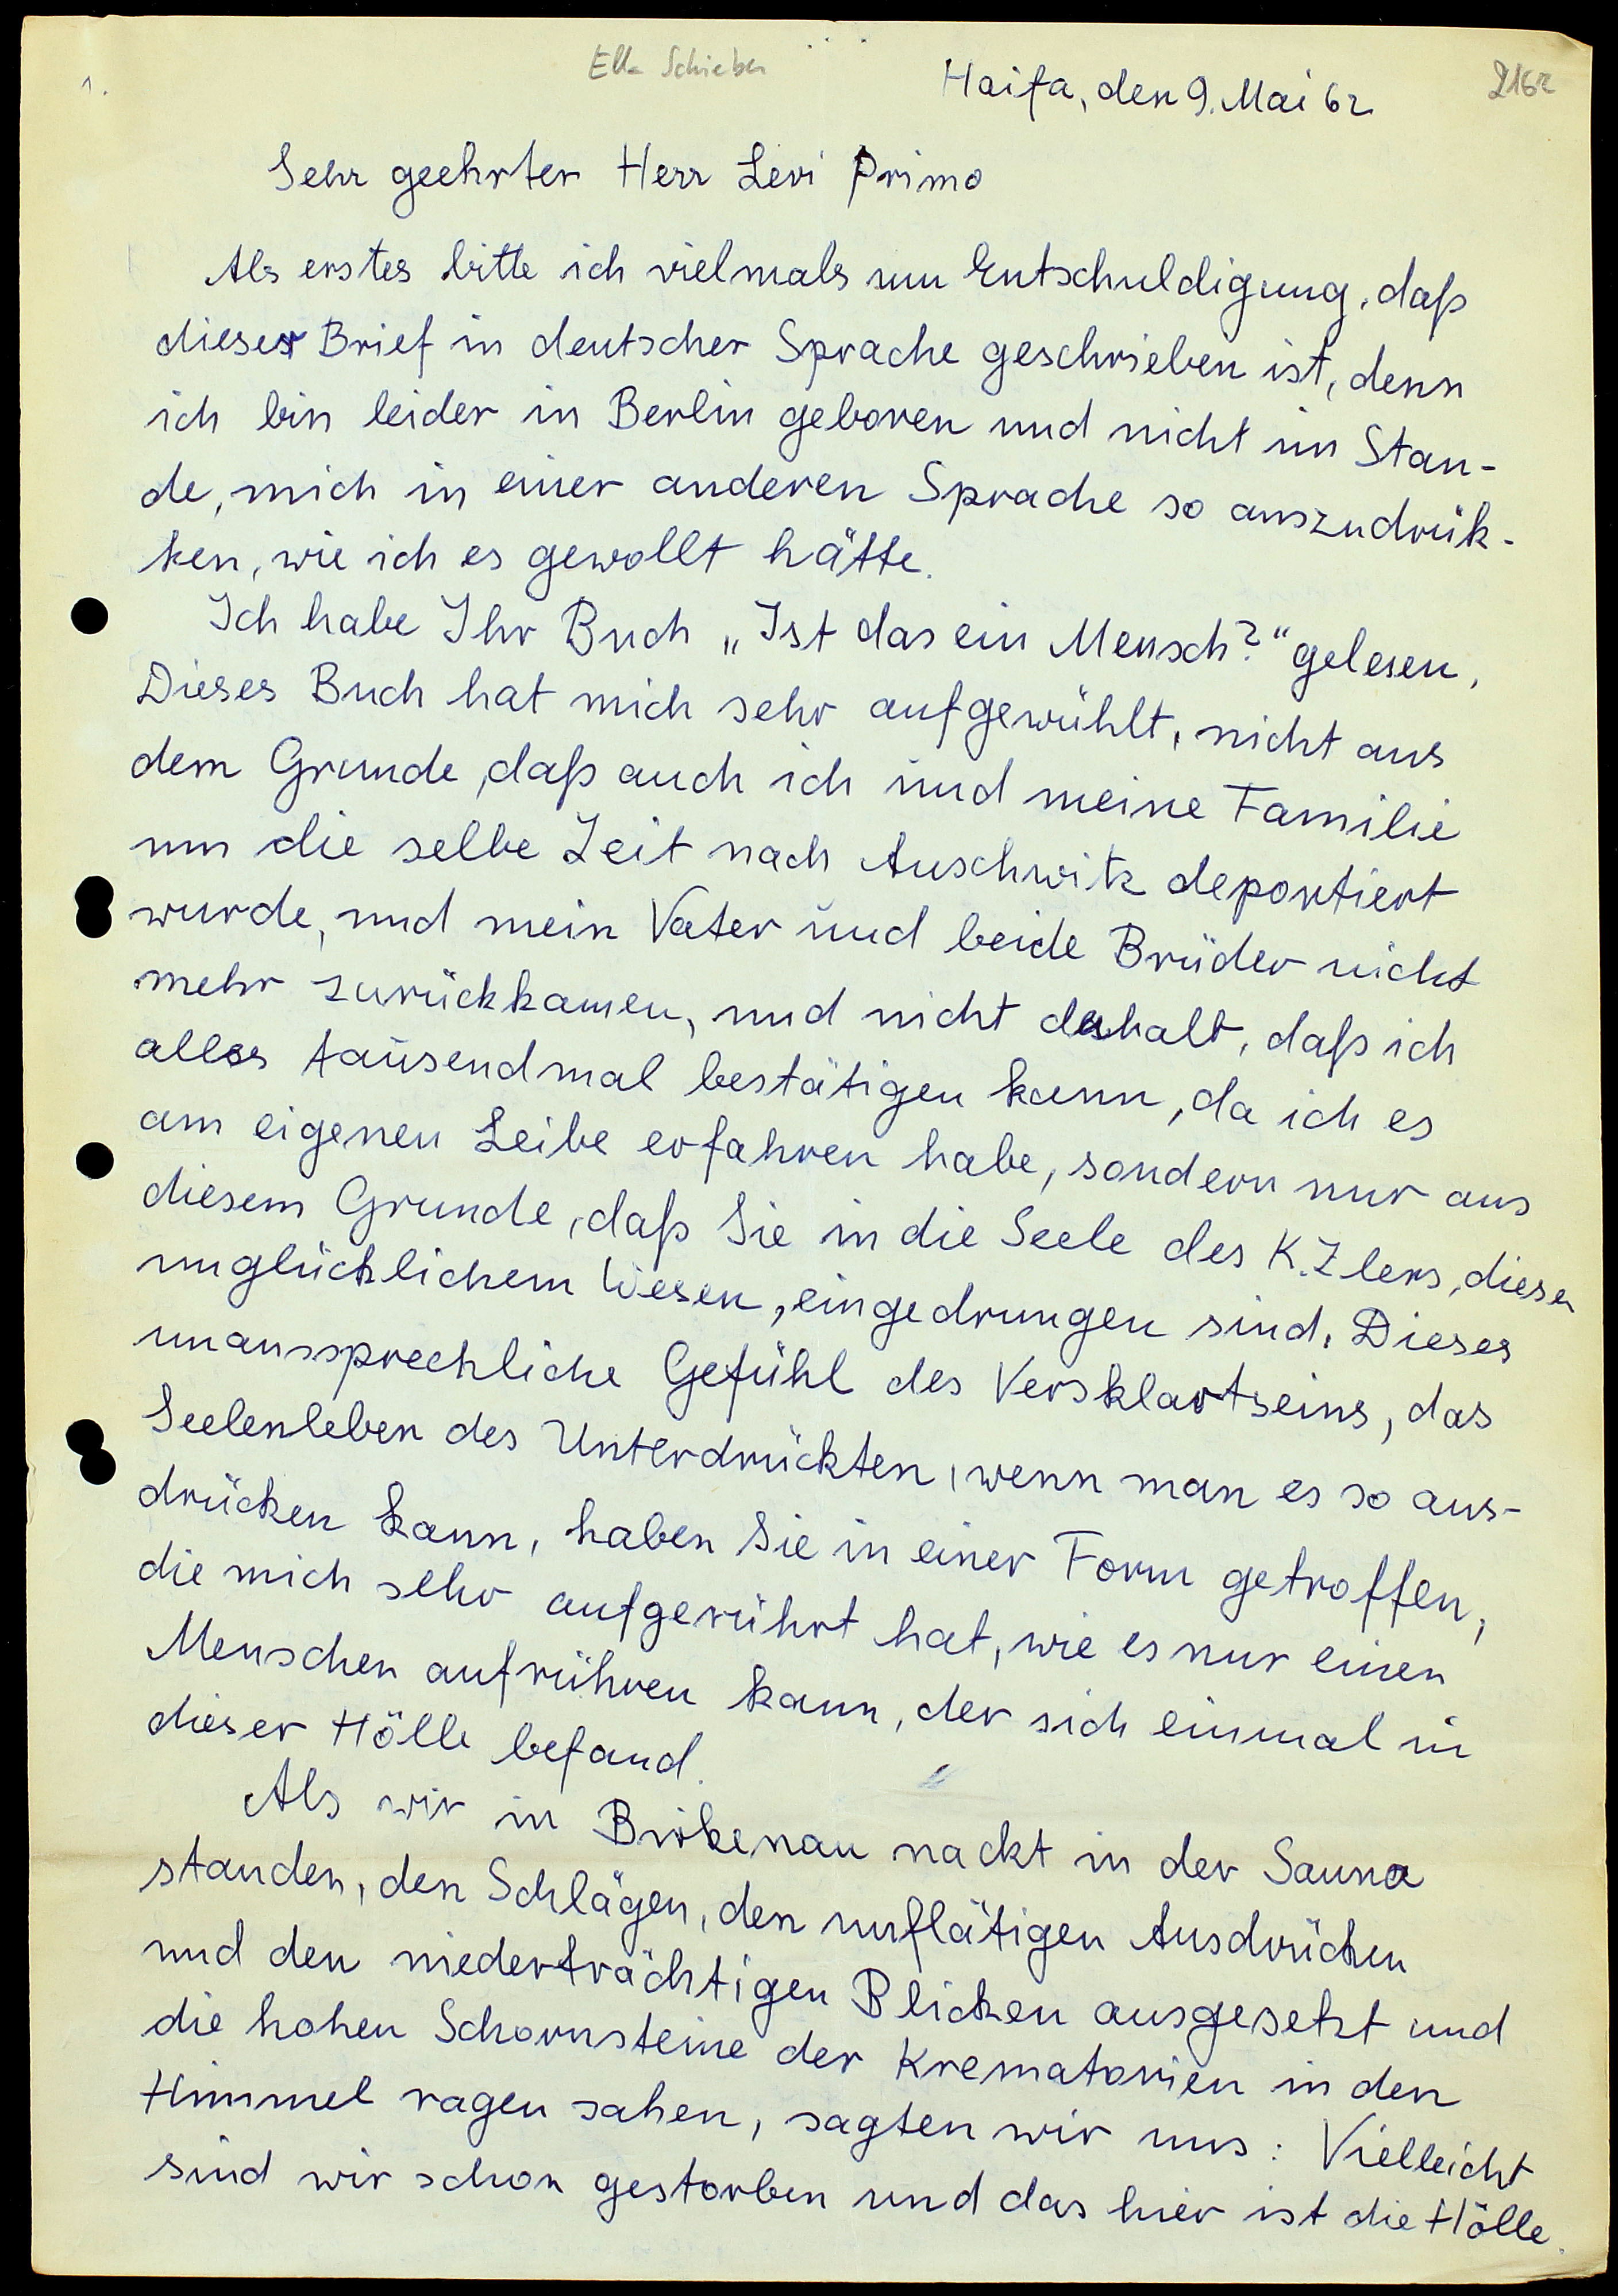 1.
Ella Schieber
Haifa, den 9. Mai 62
2162
Sehr geehrter Herr Levi Primo
Als erstes bitte ich vielmals um Entschuldigung, daß
dieser Brief in deutscher Sprache geschrieben ist, denn
ich bin leider in Berlin geboren und nicht im Stan-
de, mich in einer anderen Sprache so auszudrük-
ken, wie ich es gewollt hätte.
Ich habe Ihr Buch „Ist das ein Mensch?“ gelesen,
Dieses Buch hat mich sehr aufgewühlt, nicht aus
dem Grunde, daß auch ich und meine Familie
um die selbe Zeit nach Auschwitz deportiert
wurde, und mein Vater und beide Brüder nicht
mehr zurückkamen, und nicht deshalb, daß ich
alles tausendmal bestätigen kann, da ich es
am eigenen Leibe erfahren habe, sondern nur aus
diesem Grunde, daß Sie in die Seele des K.Zlers, diesen
unglücklichem Wesen, eingedrungen sind. Dieses
unaussprechliche Gefühl des Versklavtseins, das
Seelenleben des Unterdrückten, wenn man es so aus-
drücken kann, haben Sie in einer Form getroffen,
die mich sehr aufgerührt hat, wie es nur einen
Menschen aufrühren kann, der sich einmal in
dieser Hölle befand.
Als wir in Birkenau nackt in der Sauna
standen, den Schlägen, den unflätigen Ausdrücken
und den niederträchtigen Blicken ausgesetzt und
die hohen Schornsteine der Krematorien in den
Himmel ragen sahen, sagten wir uns: Vielleicht
sind wir schon gestorben und das hier ist die Hölle.